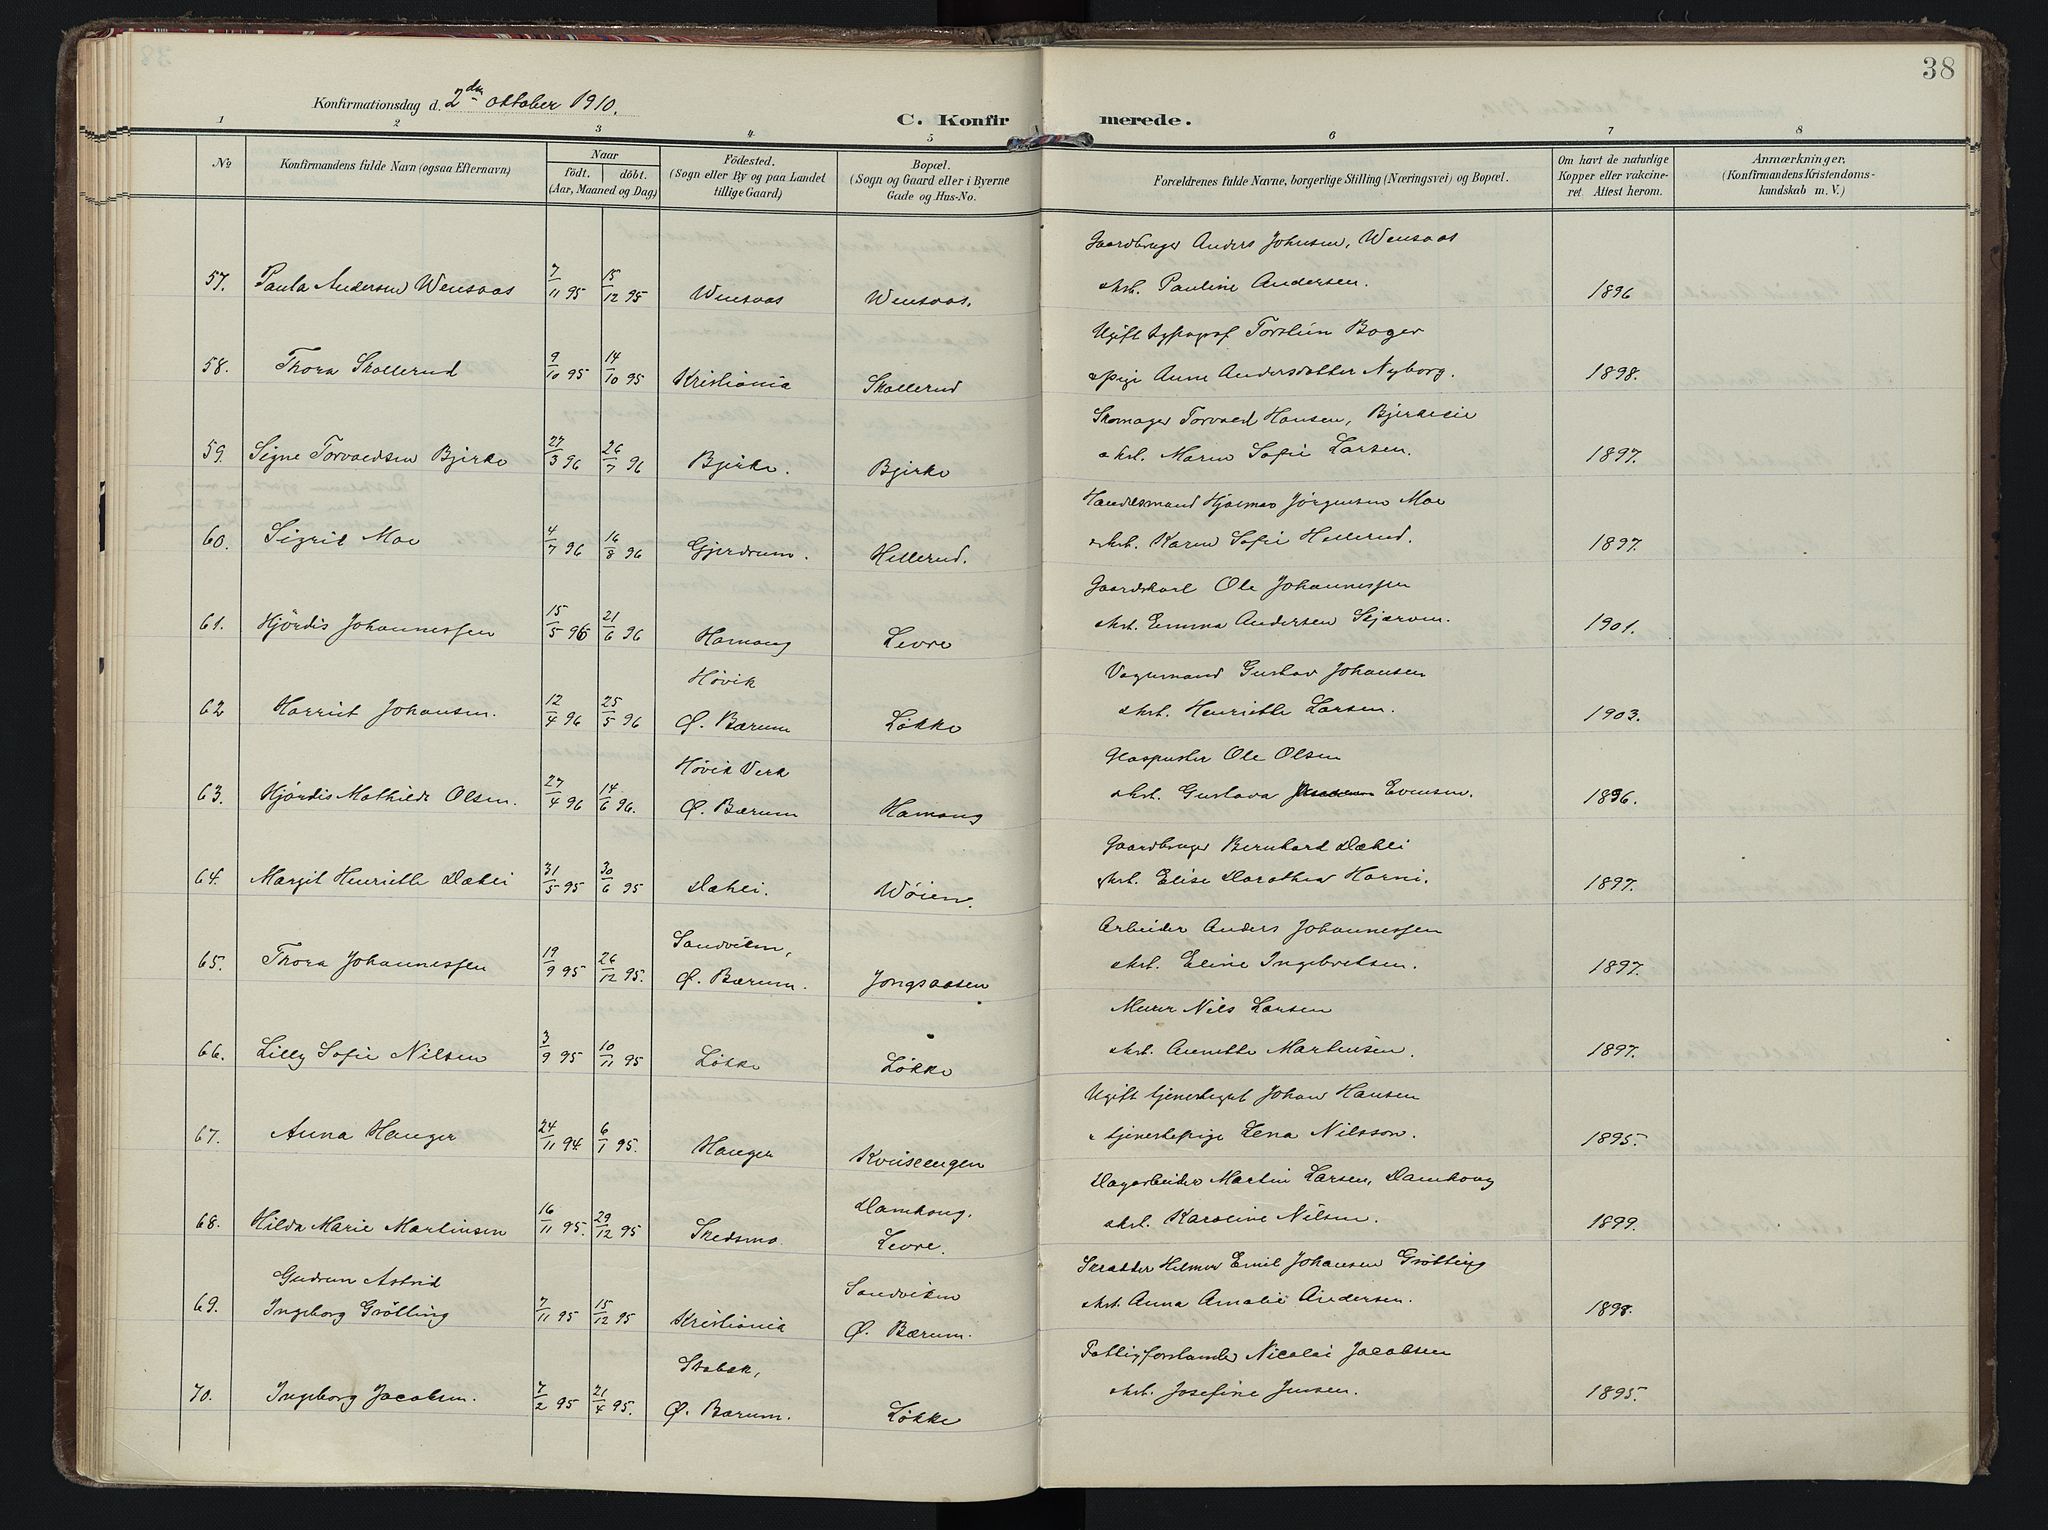 38
Konfirmationsdag d. 2den oktober 1910.
C. Konfirmerede.
1 2 3 4 5 6 7 8
No
Konfirmandens fulde Navn (ogsaa Efternavn)
Naar
födt. döbt.
(Aar, Maaned og Dag)
Födested.
(Sogn eller By og paa Landet
tillige Gaard)
Bopæl.
(Sogn og Gaard eller i Byerne
Gade og Hus-No.
Forældrenes fulde Navne, borgerlige Stilling (Næringsvei) og Bopæl.
Om havt de naturlige
Kopper eller vakcine-
ret. Attest herom.
Anmærkninger,
(Konfirmandens Kristendoms-
kundskab m. V.)
Gaardbruger Anders Johnsen, Wensaas
57. Paula Andersen Wensaas 7/11 95 15/12 95 Wensaas Wensaas. & hst. Pauline Andersen. 1896
Ugift typograf Torstein Boger
58. Thora Skollerud 9/10 95 14/10 95 Kristiania Skollerud & pige Anne Andersdatter Nyborg. 1898.
Skomager Torvald Hansen, Bjerkesie
59. Signe Torvaldsen Bjerke 27/3 96 26/7 96 Bjerke. Bjerke & hst. Maren Sofie Larsen. 1897.
Handelsmand Hjalmar Jørgensen Moe
60. Sigrid Moe 4/7 96 16/8 96 Gjerdrum. Hellerud. & hst. Karen Sofie Hellerud. 1897.
Gaardskarl Ole Johannessen
61. Hjördis Johannessen 15/5 96 21/6 96 Hamang Levre & hst. Emma Andersen Skjærven. 1901.
Høvik Vognmand Gustav Johansen
62 Harriet Johansen. 12/4 96 25/5 96 Ø. Bærum Løkke & hst. Henriette Larsen. 1903.
Høvik Verk Glaspuster Ole Olsen
63. Hjördis Mathilde Olsen. 27/4 96 14/6 96. Ø. Bærum Hamang & hst. Gustava Evensen. 1896.
Gaardbruger Bernhard Dæhli
64. Margit Henriette Dæhli 31/5 95 30/6 95 Dæhli. Wøien. & hst. Elise Dorothea Horni. 1897.
Sandviken, Arbeider Anders Johannessen
65. Thora Johannessen 19/9 95 26/12 95. Ø. Bærum. Jongsaasen & hst. Eline Ingebretsen. 1897.
Murer Nils Larsen
66. Lilly Sofie Nilsen 3/9 95 10/11 95 Løkke Løkke & hst. Annette Martinsen. 1897.
Ugift tjenestegut Johan Hansen
67. Anna Hauger 24/11 94. 6/1 95. Hauger Kveiseengen & tjenestepige Lena Nilsson. 1895.
Damhaug. Dagarbeider Martin Larsen, Damhaug
68. Hilda Marie Martinsen 16/11 95. 29/12 95 Skedsmo. Levre. & hst. Karoline Nilsen. 1899.
Gudrun Astrid Sandviken Skrædder Helmer Emil Johansen Grötting
69. Ingeborg Grötting 7/11 95 15/12 95 Kristiania Ø. Bærum. & hst. Anna Amalie Andersen. 1898.
Stabæk, Fattigforstander Nicolai Jacobsen
70. Ingeborg Jacobsen. 7/2 95 21/4 95. Ø. Bærum. Løkke & hst. Josefine Jensen. 1895.